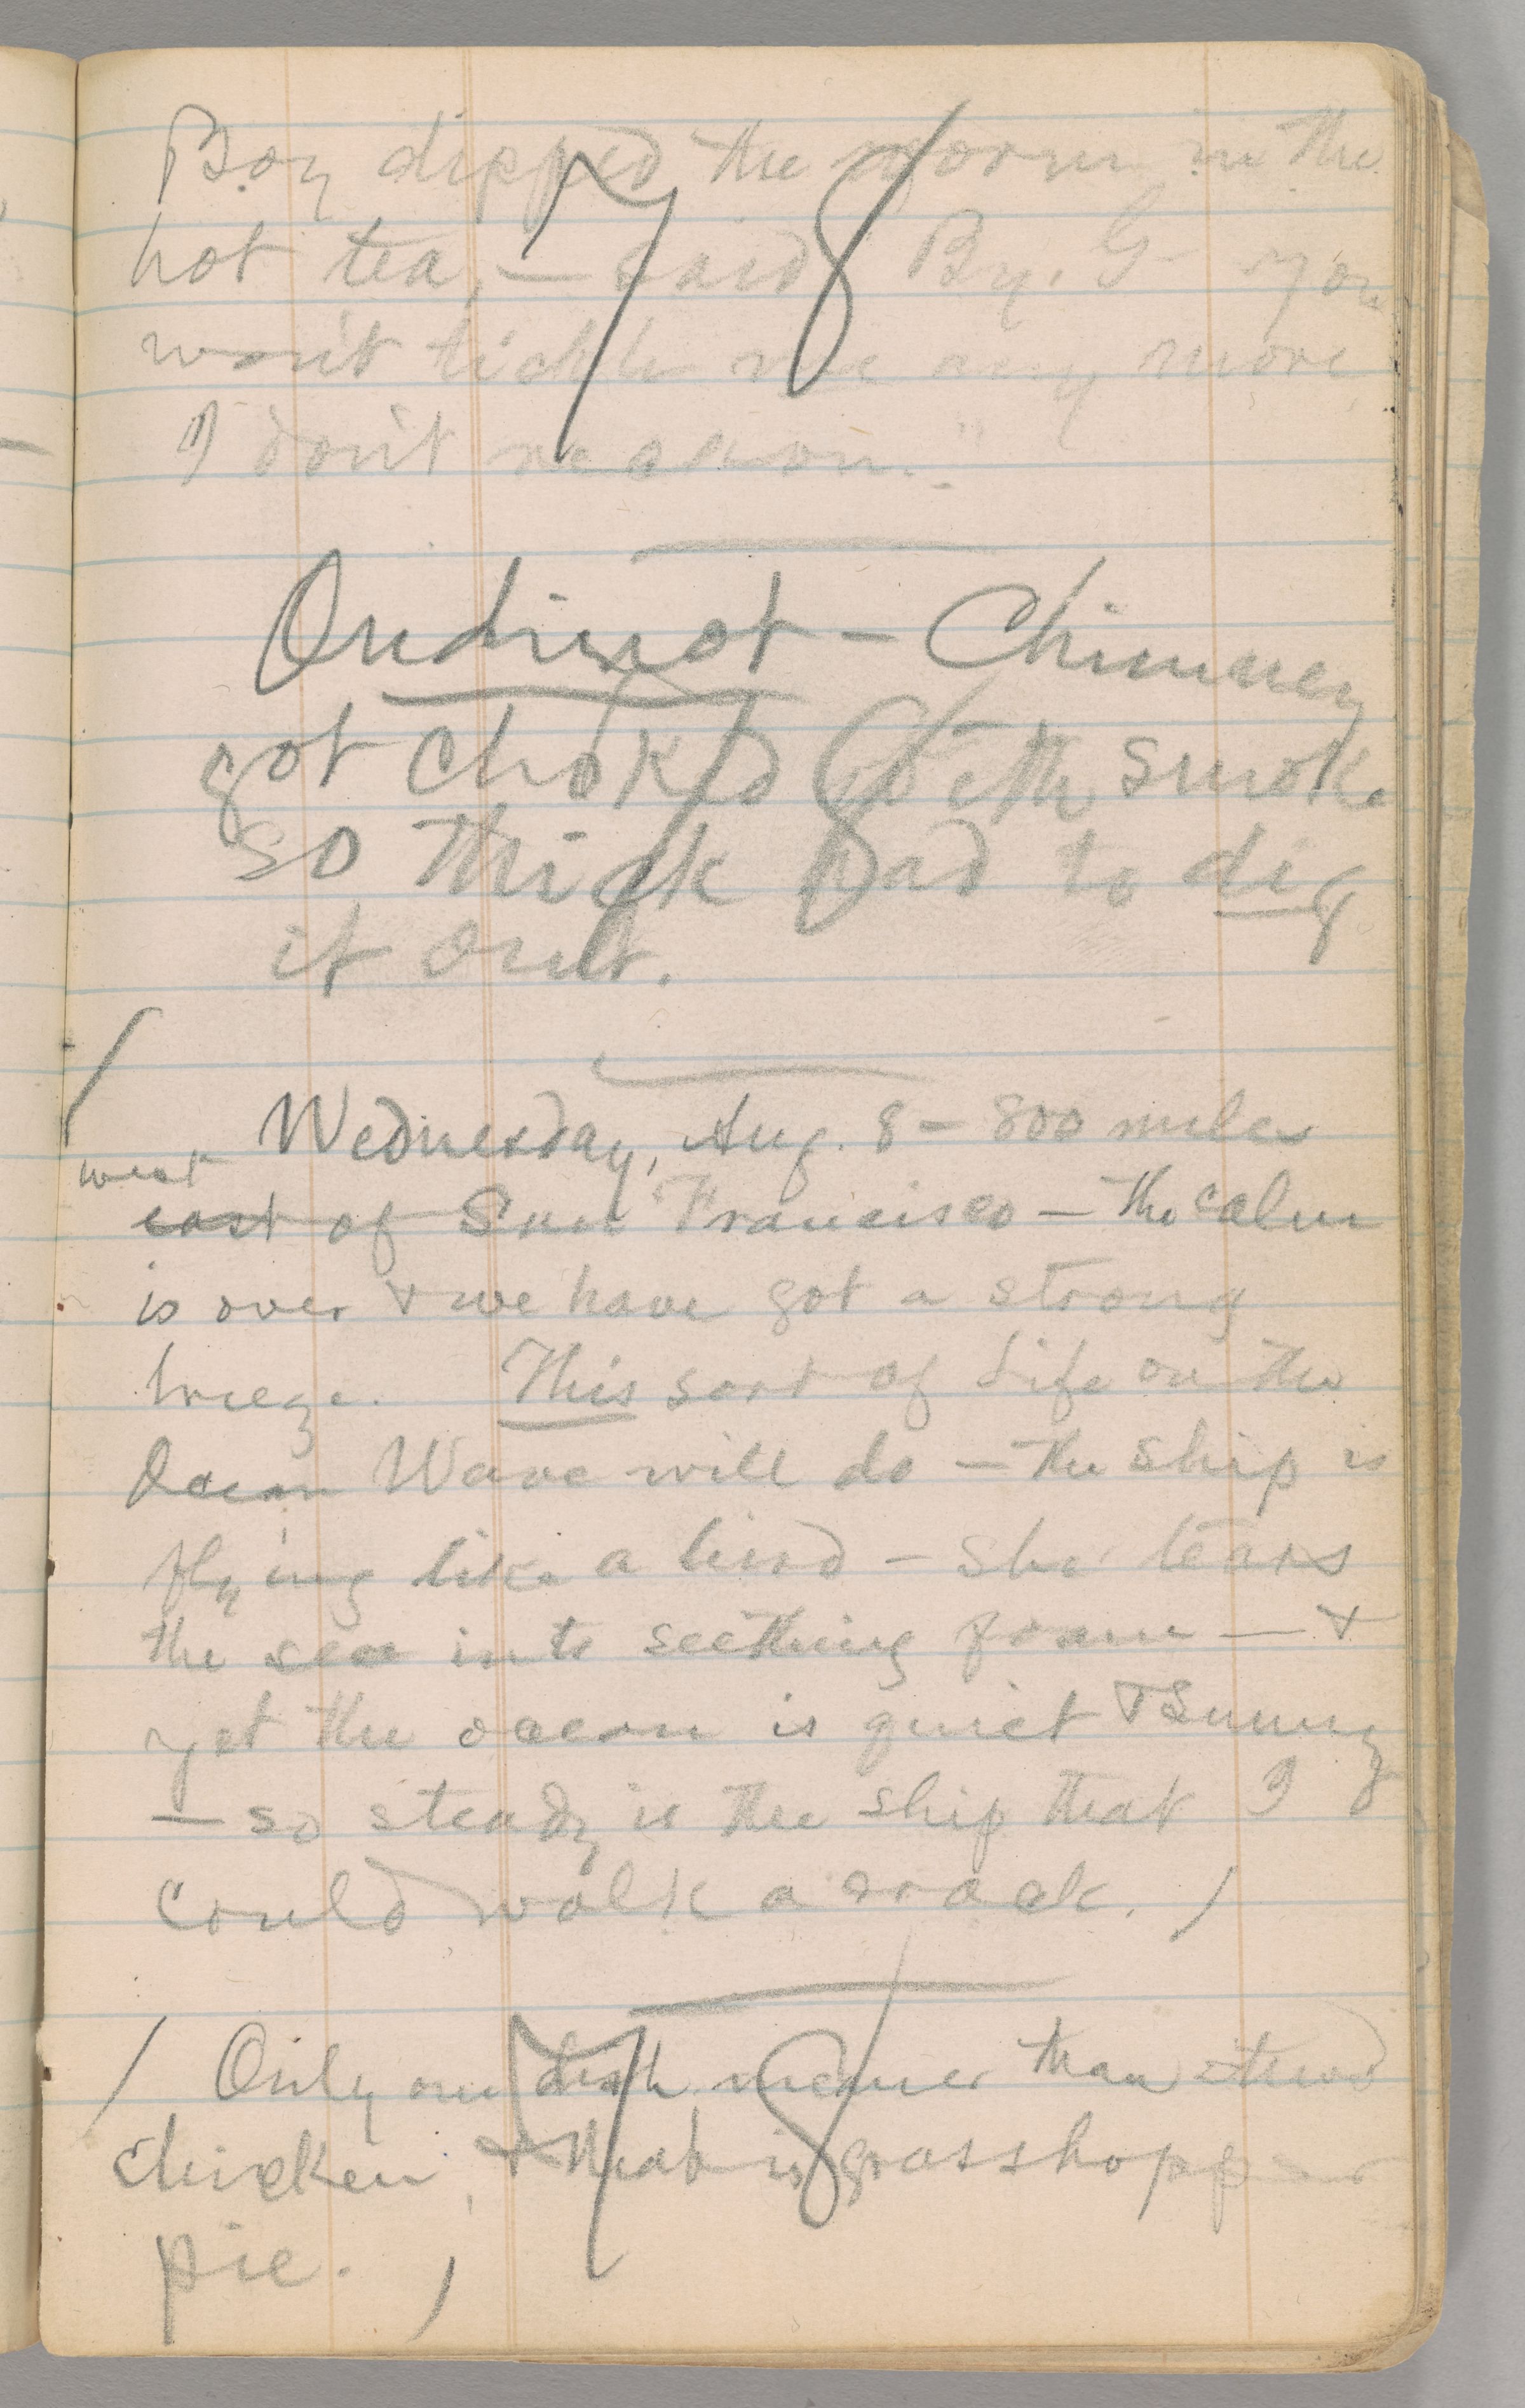 Boy dipped the worm in the
hot tea, — said By. G— you
won't tickle me any more
I don't reckon."
Oudinot — Chimney
got choked with smoke
so thick had to dig
it out.
Wednesday, Aug. 8 — 800 miles
west
east of San Francisco — the calm
is over & we have got a strong
breeze. This sort of Life on the
Ocean Wave will do — the ship is
flying like a bird — she tears
the sea into seething foam — &
yet the ocean is quiet & sunny
— so steady is the ship that I
could walk a crack.
Only one dish meaner than stewed
chicken, & that is grasshopper
pie.